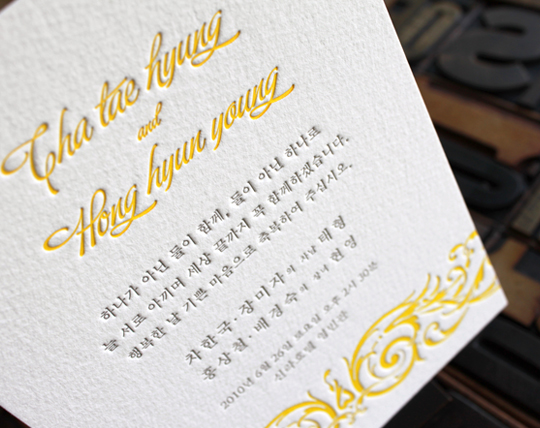 Cha tae hyung
and
Hong hyun young
하나가 아닌 둘이 함께, 둘이 아닌 하나로
늘 서로 아끼며 세상 끝까지 꼭 함께하겠습니다.
행복한 날 기쁜 마음으로 축복하여 주십시오.
차한국·장미자의 차남 태형
홍상철·배경숙의 장녀 현영
2010년 6월 26일 토요일 오후 2시 30분